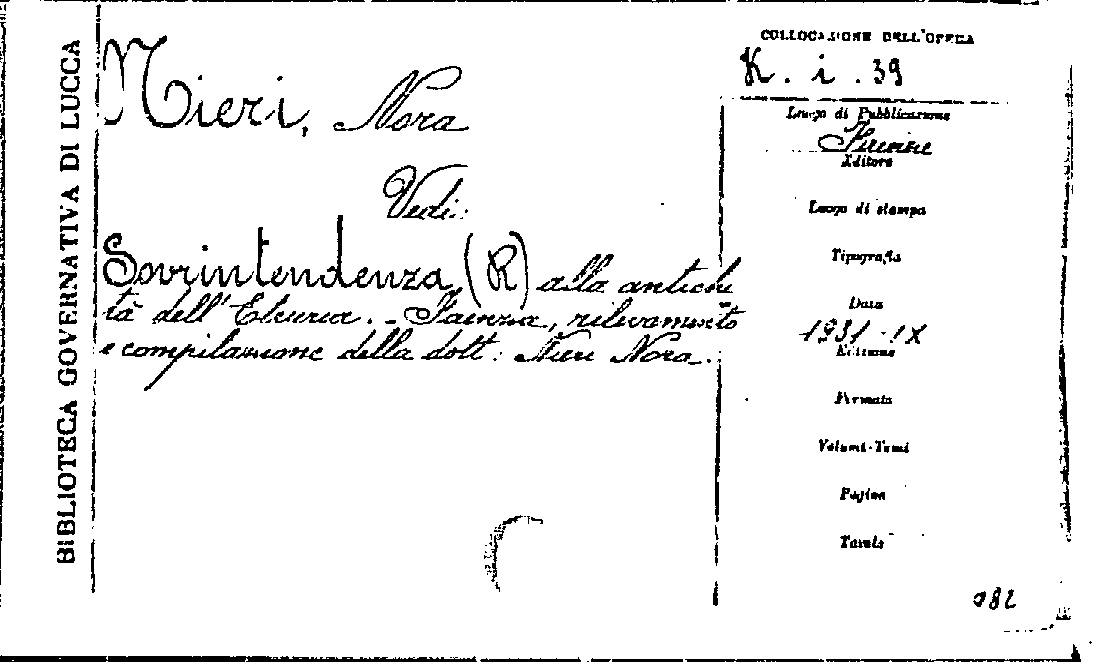 BIBLIOTECA GOVERNATIVA DI LUCCA
Nieri, Nora
Vedi:
Sovrintendenza (R) alla antichi
tà dell'Etruria. - Faenza, rilevamento
e compilazione della dott: Nieri Nora.
COLLOCAZIONE DELL'OPERA
K. i. 39
Luogo di Pubblicazione
Firenze
Editore
Luogo di stampa
Tipografia
Data
1931-IX
Edizione
Formato
Volumi-Tomi
Pagine
Tavole
982